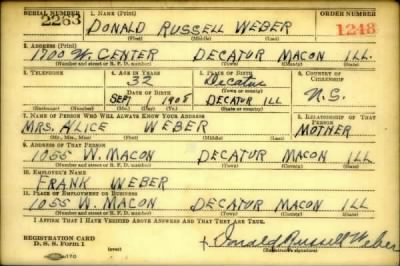 SERIAL NUMBER 1. NAME (Print) ORDER NUMBER
2263 DONALD RUSSELL WEBER 1248
(First) (Middle) (Last)
2. ADDRESS (Print)
1700 W. CENTER DECATUR MACON ILL.
(Number and street or R. F. D. number) (Town) (County) (State)
3. TELEPHONE 4. AGE IN YEARS 5. PLACE OF BIRTH 6. COUNTRY OF CITIZENSHIP
32 Decatur
DATE OF BIRTH (Town or county)
SEPT 1908 DECATUR ILL U.S.
(Exchange) (Number) (Mo.) (Day) (Yr.) (State or country)
7. NAME OF PERSON WHO WILL ALWAYS KNOW YOUR ADDRESS 8. RELATIONSHIP OF THAT PERSON
MRS. ALICE WEBER MOTHER
(Mr., Mrs., Miss) (First) (Middle) (Last)
9. ADDRESS OF THAT PERSON
1055 W. MACON DECATUR MACON ILL
(Number and street or R. F. D. number) (Town) (County) (State)
10. EMPLOYER'S NAME
FRANK WEBER
11. PLACE OF EMPLOYMENT OR BUSINESS
1055 W. MACON DECATUR MACON ILL
(Number and street or R. F. D. number) (Town) (County) (State)
I AFFIRM THAT I HAVE VERIFIED ABOVE ANSWERS AND THAT THEY ARE TRUE.
REGISTRATION CARD
D. S. S. Form 1 Donald Russell Weber
(Registrant's signature)